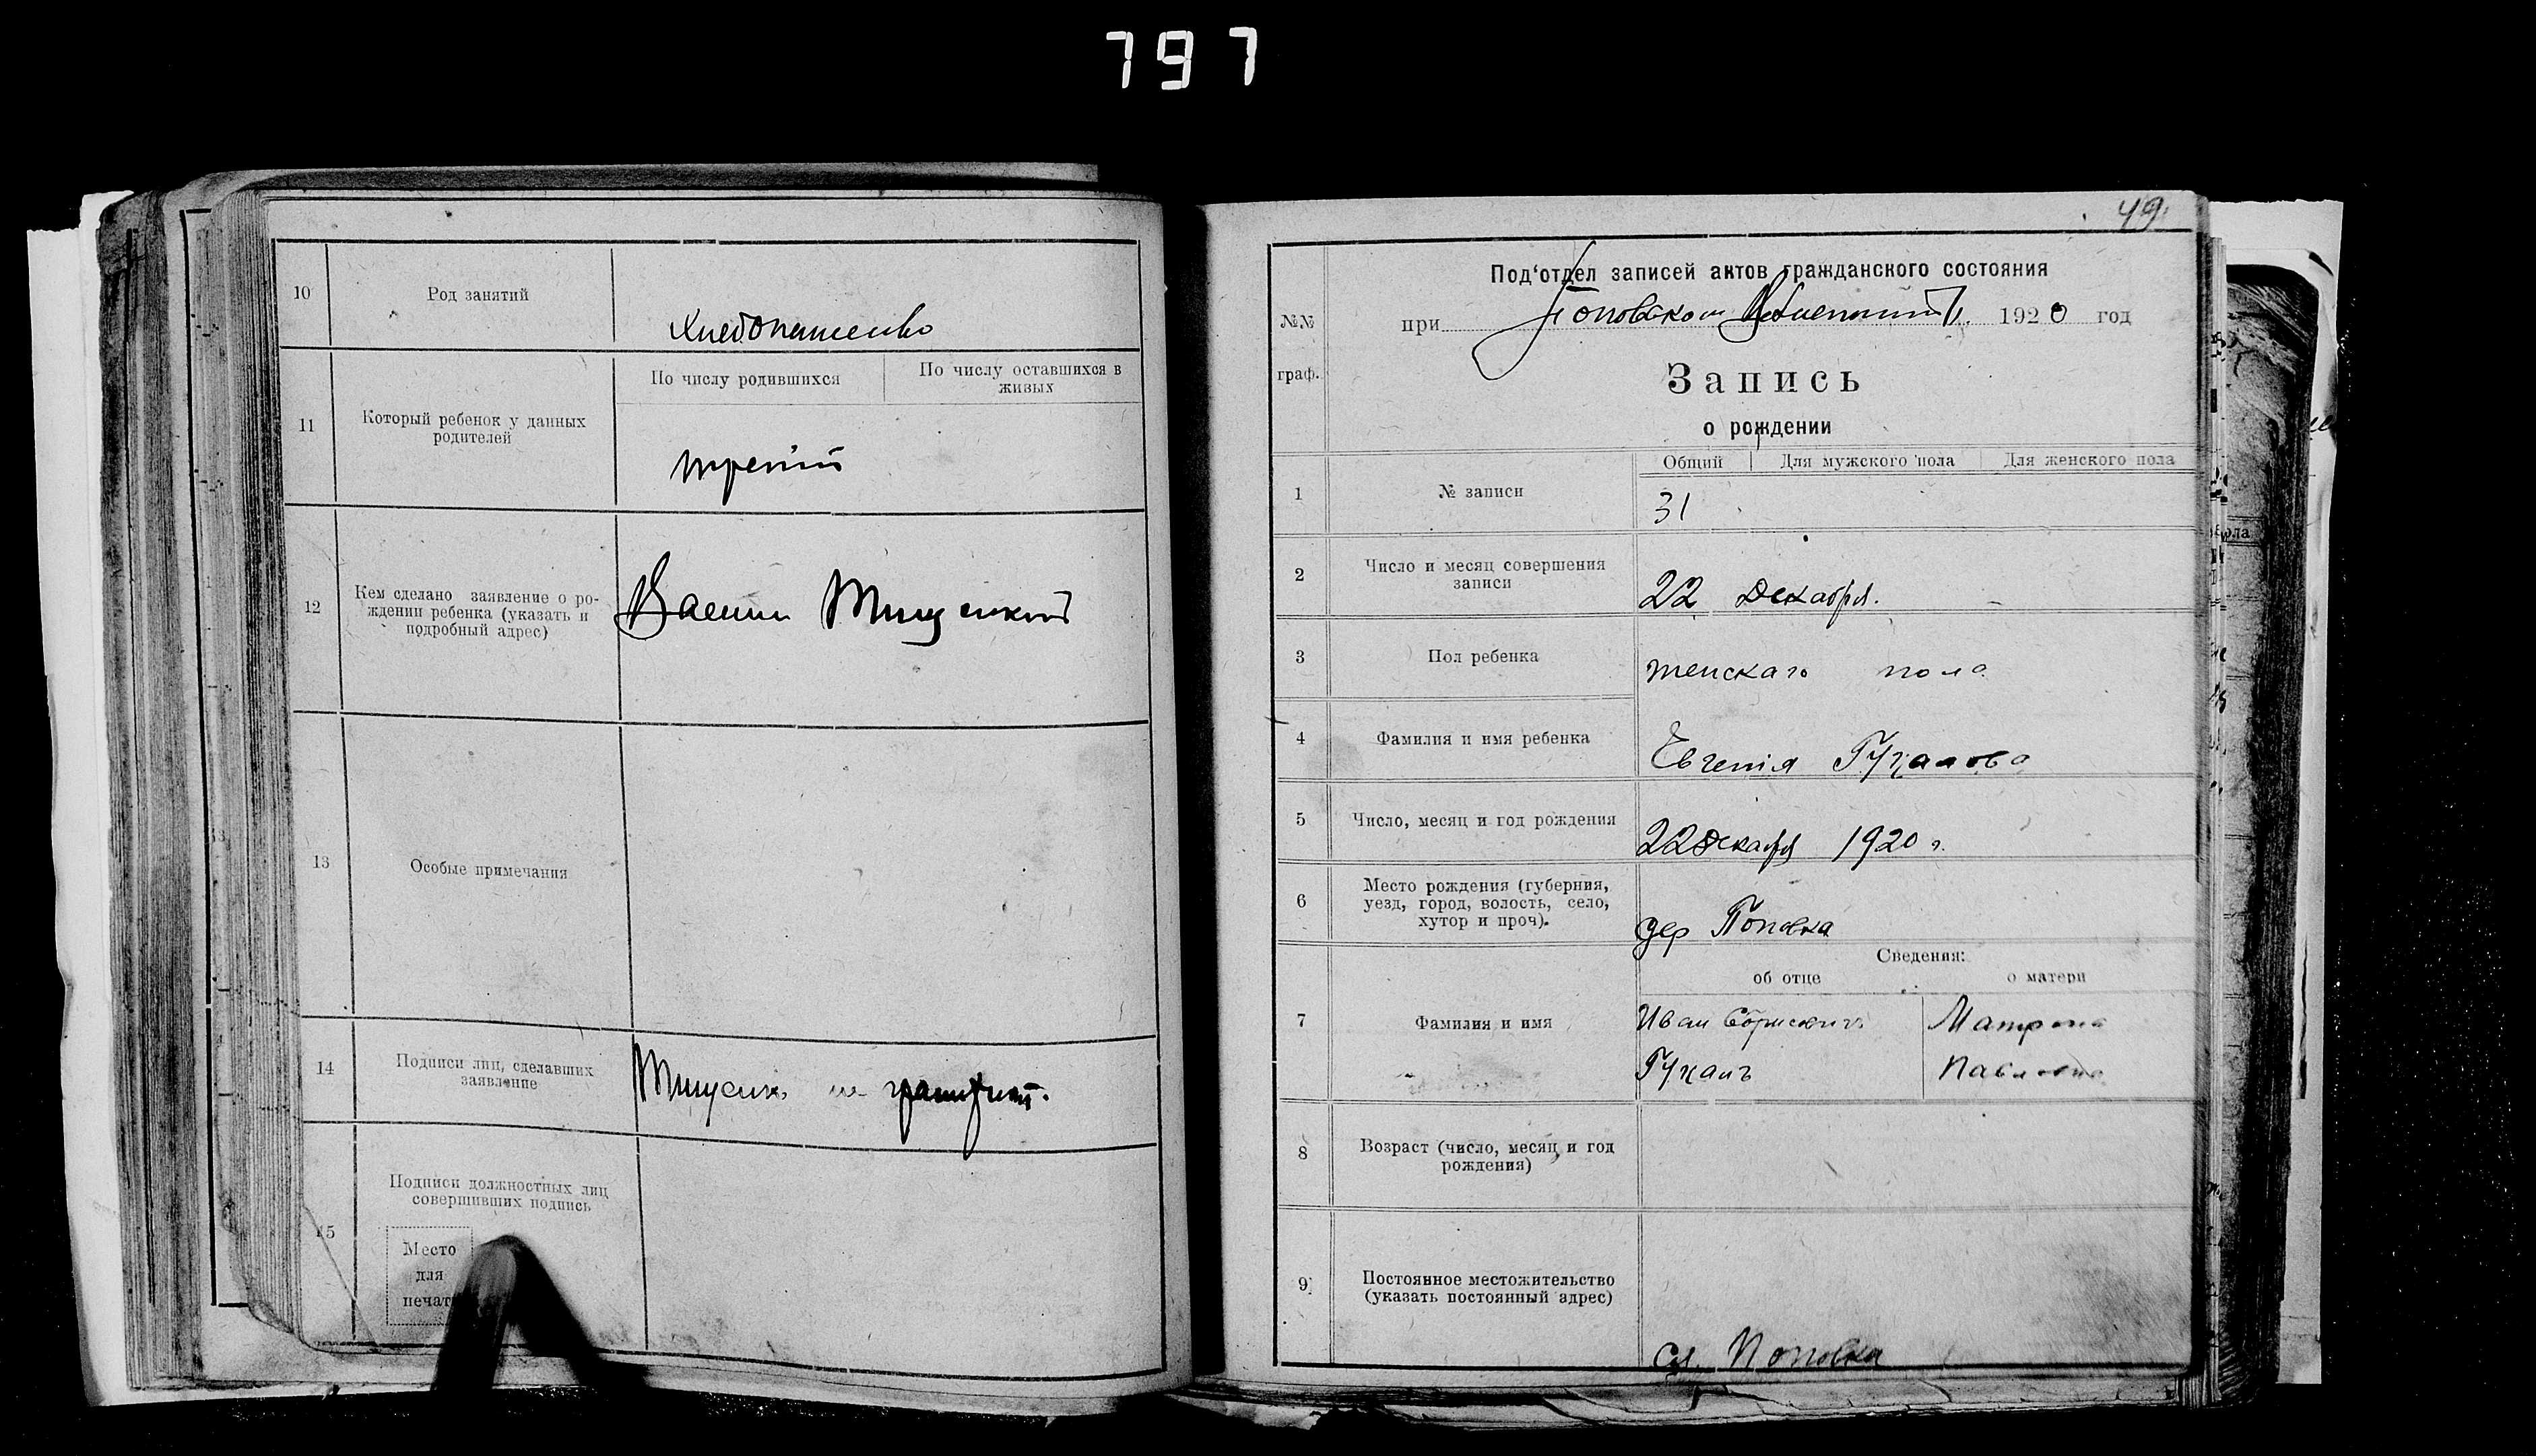 797
10
Род занятий
Хлебопашество
11
Который ребенок у данных
родителей
По числу родившихся
По числу оставшихся в
живых
третий
12
Кем сделано заявление о ро-
ждении ребенка (указать и
подробный адрес)
13
Особые примечания
14
Подписи лиц, сделавших
заявление
15
Подписи должностных лиц
совершивших подпись
Место
для
печати
49
№№
граф.
Под'отдел записей актов гражданского состояния
при Поповском 1920 год
Запись
о рождении
Общий Для мужского пола Для женского пола
1
№ записи
31
2
Число и месяц совершения
записи
22 Декабря.
3
Пол ребенка
женскаго пола
4
Фамилия и имя ребенка
Евгенiя
5
Число, месяц и год рождения
22 декабря 1920 г.
6
Место рождения (губерния,
уезд, город, волость, село,
хутор и проч).
дер Поповка
Сведения:
об отце о матери
7
Фамилия и имя
Иван
Матрона
Павловна
8
Возраст (число, месяц и год
рождения)
9
Постоянное местожительство
(указать постоянный адрес)
Поповка